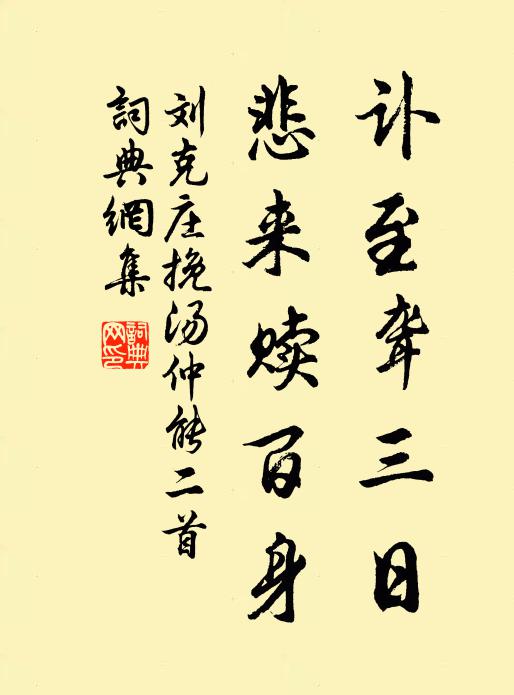 讣至聋三日
悲来赎百身
刘克庄挽汤仲能二首
詞典網集
詞典
网印